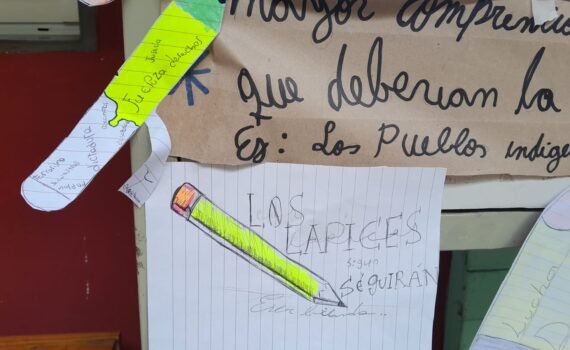 mayor comprensió
que deberian la
Ej: Los Pueblos indige
Justicia derechos
dictadura
LOS
LAPICES
sigun
SEGUIRÁN
Escribiendo..
Lucha